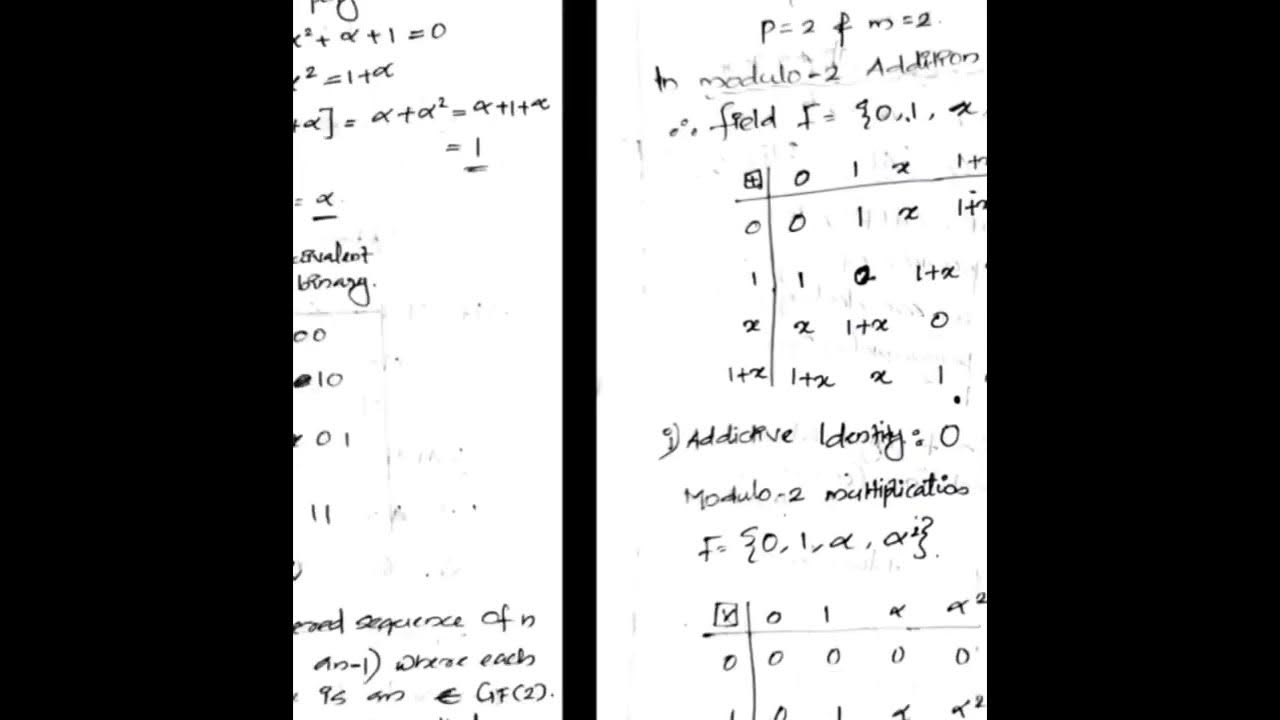 x² + α + 1 = 0
² = 1+α
+α] = α+α² = α+1+α
= 1
= α
ivalent
binary.
00
10
01
11
ered sequence of n
an-1) where each
is an ∈ GF(2).
P=2 & m=2.
In modulo-2 Addition
∴ field F = {0, 1, x,
⊞ 0 1 x 1+x
0 0 1 x 1+x
1 1 0 1+x
x x 1+x 0
1+x 1+x x 1
i) Addictive Identity: 0
Modulo-2 multiplication
F = {0, 1, α, α²}.
0 1 α α²
0 0 0 0 0
1 0 1 α α²